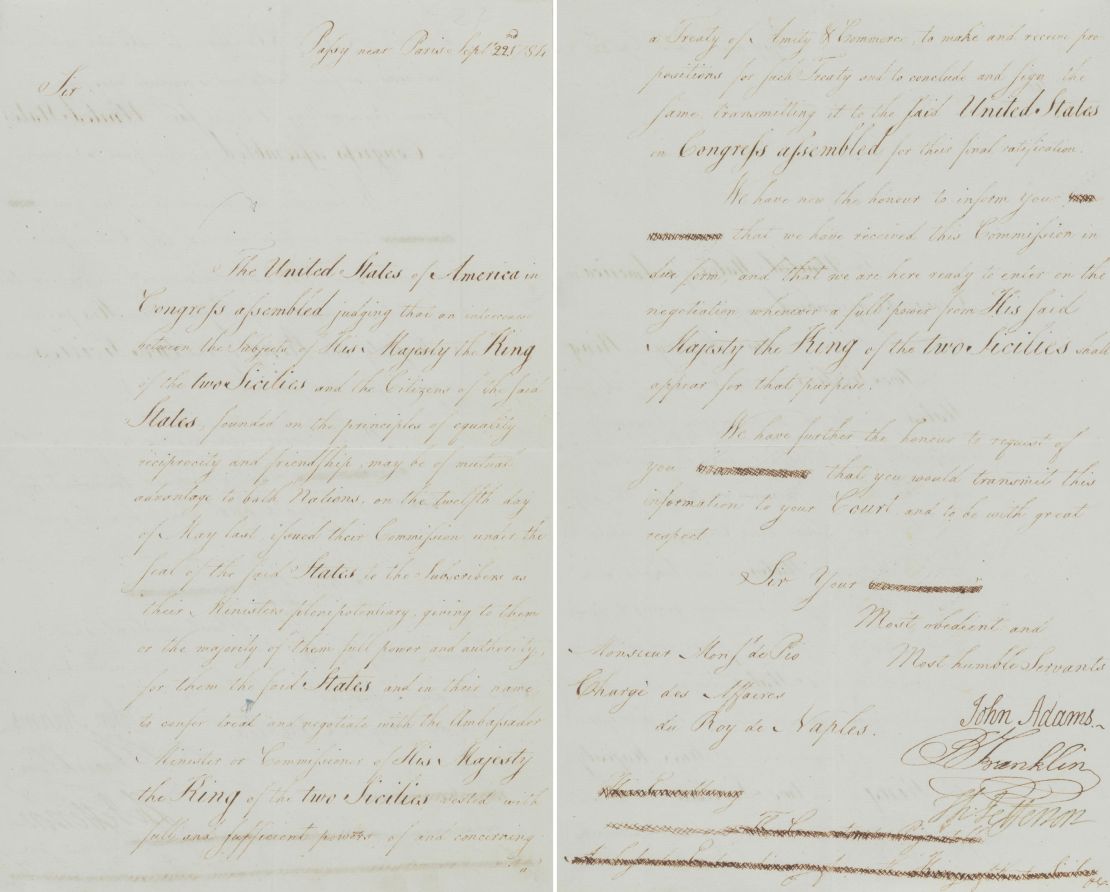 Passy near Paris Sept. 22nd 1784
Sir
The United States of America in
Congress assembled judging that an intercourse
between the Subjects of His Majesty the King
of the two Sicilies and the Citizens of the said
States, founded on the principles of equality
reciprocity and friendship, may be of mutual
advantage to both Nations, on the twelfth day
of May last issued their Commission under the
Seal of the said States to the Subscribers as
their Ministers plenipotentiary, giving to them
or the majority of them full power and authority,
for them the said States and in their name
to confer treat and negotiate with the Ambassador
Minister or Commissioner of His Majesty
the King of the two Sicilies vested with
full and sufficient powers, of and concerning
a
a Treaty of Amity & Commerce, to make and receive pro-
positions for such Treaty and to conclude and sign the
same, transmitting it to the said United States
in Congress assembled for their final ratification.
We have now the honour to inform you
that we have received this Commission in
due form, and that we are here ready to enter on the
negotiation whenever a full power from His said
Majesty the King of the two Sicilies shall
appear for that purpose.
We have further the honour to request of
you that you would transmit this
information to your Court and to be with great
respect
Sir Your
Most obedient and
Most humble Servants
Monsieur Monsr. de Pio
Chargé des Affaires
du Roy de Naples.
John Adams.
B Franklin
Th: Jefferson